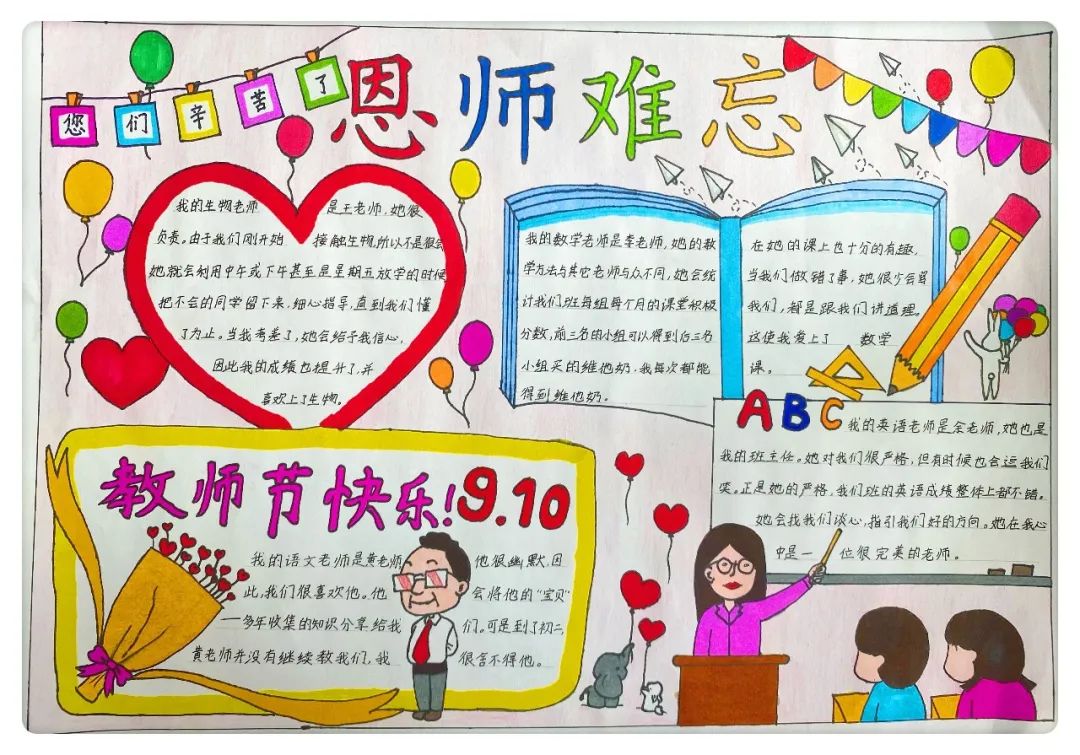 您们辛苦了
恩师难忘
我的生物老师是王老师,她很
负责。由于我们刚开始接触生物,所以不是很会
她就会利用中午或下午甚至是星期五放学的时候
把不会的同学留下来,细心指导,直到我们懂
了为止。当我考差了,她会给予我信心,
因此我的成绩也提升了,并
喜欢上了生物。
我的数学老师是李老师,她的教
学方法与其它老师与众不同,她会统
计我们班每组每个月的课堂积极
分数,前三名的小组可以得到后三名
小组买的维他奶,我每次都能
得到维他奶。
在她的课上也十分的有趣,
当我们做错了事,她很少会骂
我们,都是跟我们讲道理。
这使我爱上了数学
课。
ABC
我的英语老师是余老师,她也是
我的班主任。她对我们很严格,但有时候也会逗我们
笑。正是她的严格,我们班的英语成绩整体上都不错。
她会找我们谈心,指引我们好的方向。她在我心
中是一位很完美的老师。
教师节快乐!9.10
我的语文老师是黄老师他很幽默,因
此,我们很喜欢他。他会将他的“宝贝”
——多年收集的知识分享给我们。可是到了初二,
黄老师并没有继续教我们,我很舍不得他。